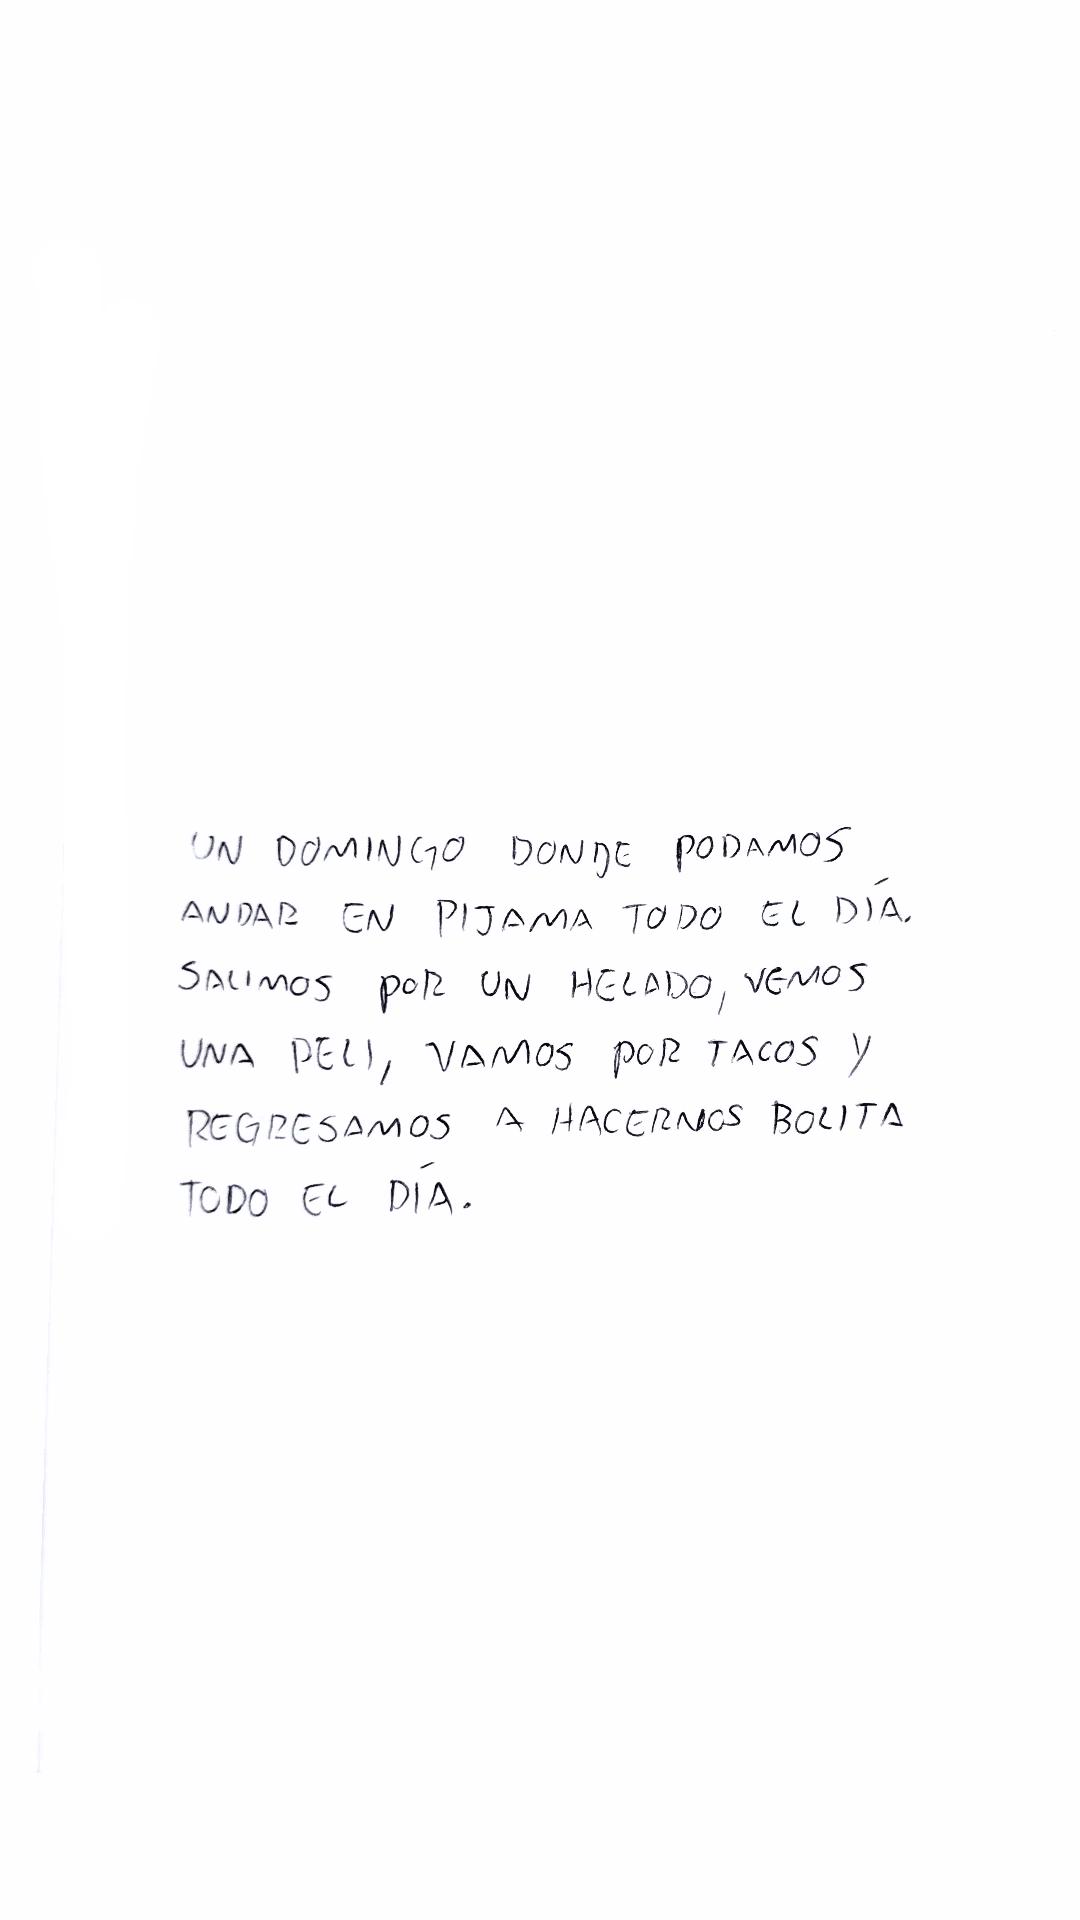 UN DOMINGO DONDE PODAMOS
ANDAR EN PIJAMA TODO EL DÍA.
SALIMOS POR UN HELADO, VEMOS
UNA PELI, VAMOS POR TACOS Y
REGRESAMOS A HACERNOS BOLITA
TODO EL DÍA.